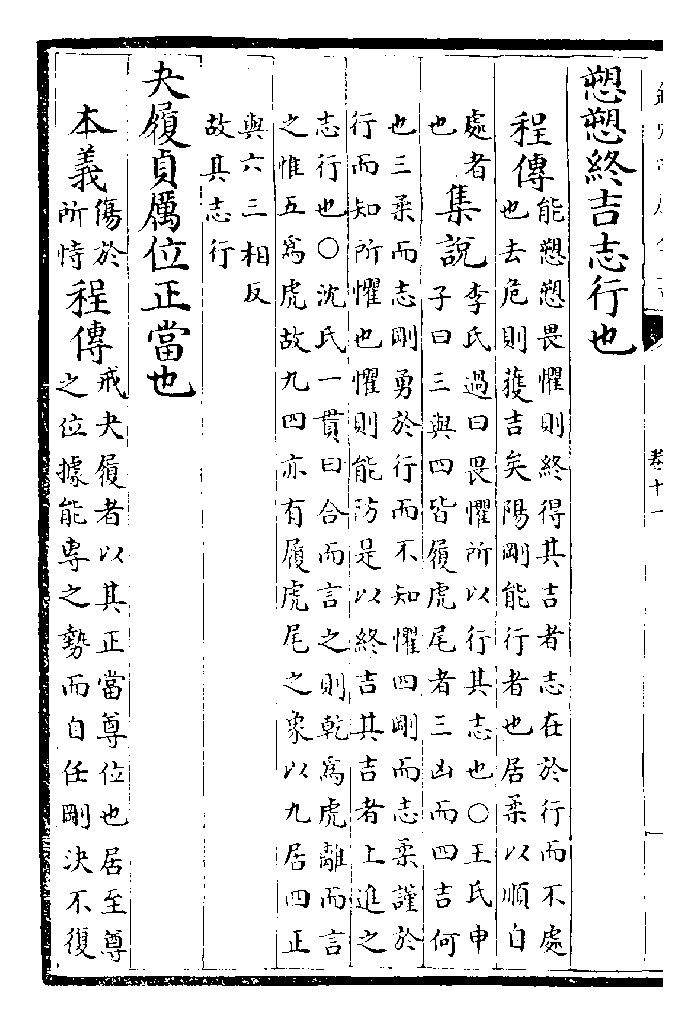 愬愬終吉志行也
程傳能愬愬畏懼則終得其吉者志在於行而不處
也去危則獲吉矣陽剛能行者也居柔以順自
處者集說李氏過曰畏懼所以行其志也○王氏申
也子曰三與四皆履虎尾者三凶而四吉何
也三柔而志剛勇於行而不知懼四剛而志柔謹於
行而知所懼也懼則能防是以終吉其吉者上進之
志行也○沈氏一貫曰合而言之則乾爲虎離而言
之惟五爲虎故九四亦有履虎尾之象以九居四正
與六三相反
故其志行
夬履貞厲位正當也
本義傷於
所恃程傳戒夬履者以其正當尊位也居至尊
之位據能專之勢而自任剛決不復
卷十一